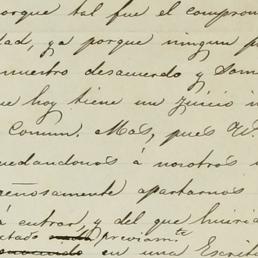 porque tal fué el compro
dad, ya porque ningun p
nuestro desacuerdo y som
ue hoy tiene un juicio i
Comun. Mas, pues V.
uedandonos á nosotros
eñosamente apartarnos
á entrar, y del que huiria
ctado previam.te
en una Escrit